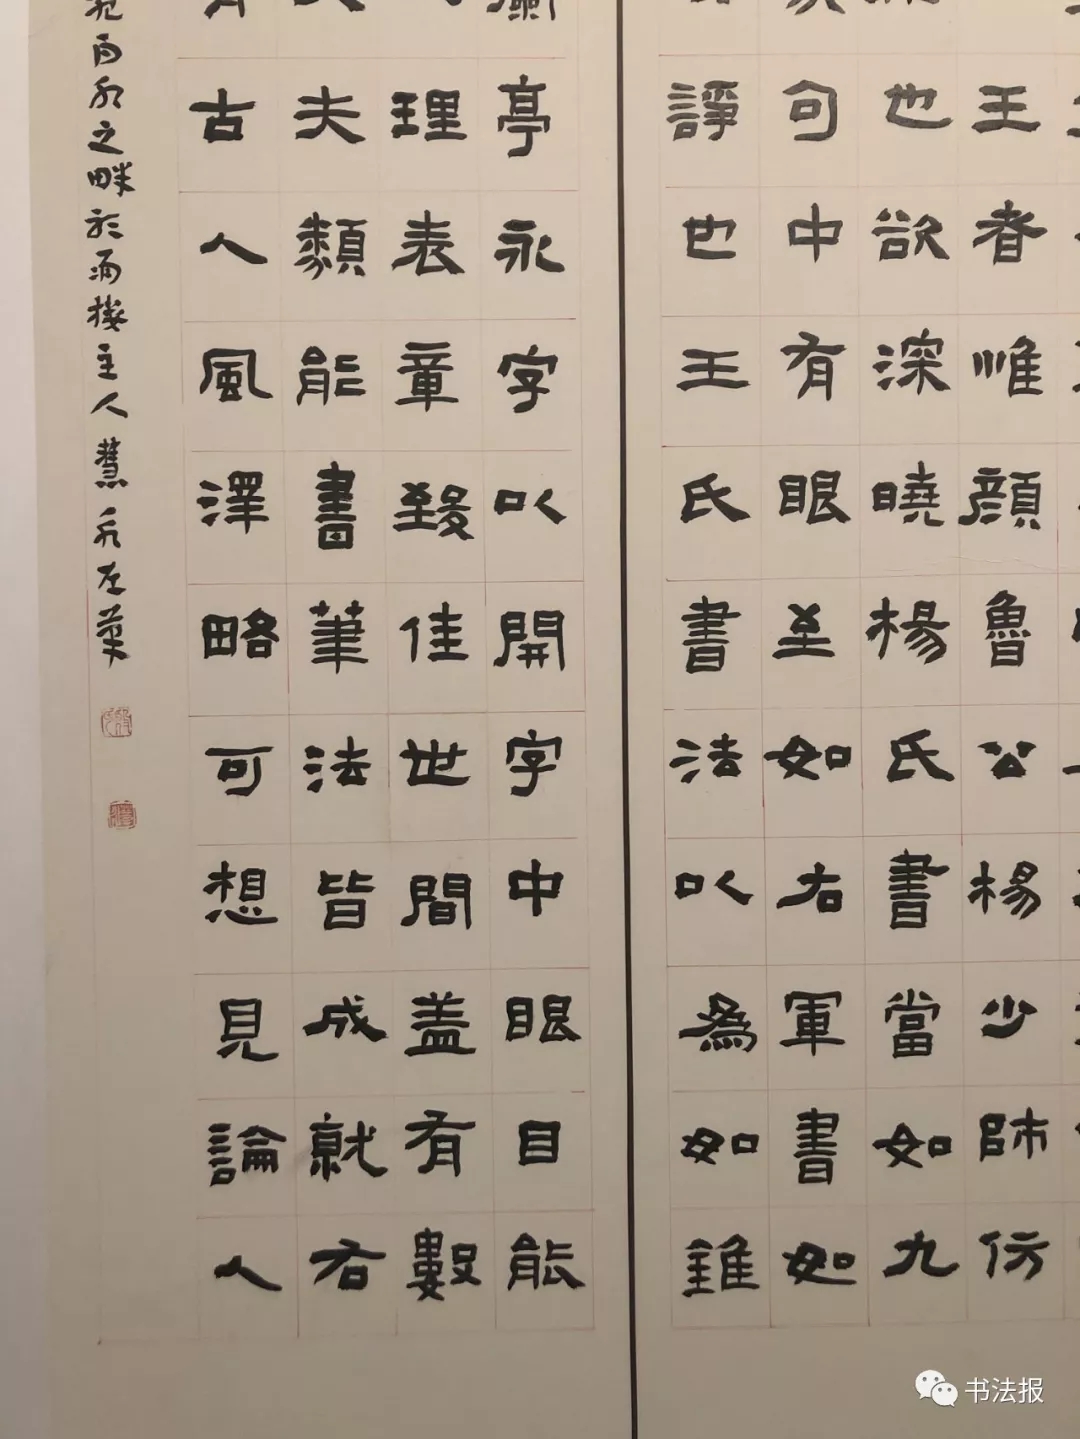 王者惟顔魯公楊少師仿
也欲深曉楊氏書當如九
句中有眼至如右軍書如
諍也王氏書法以爲如錐
亭永字以開字中眼目能
理表章致佳世間盖有數
夫類能書筆法皆成就右
古人風澤略可想見論人
之畔於雨楼主人慧
书法报